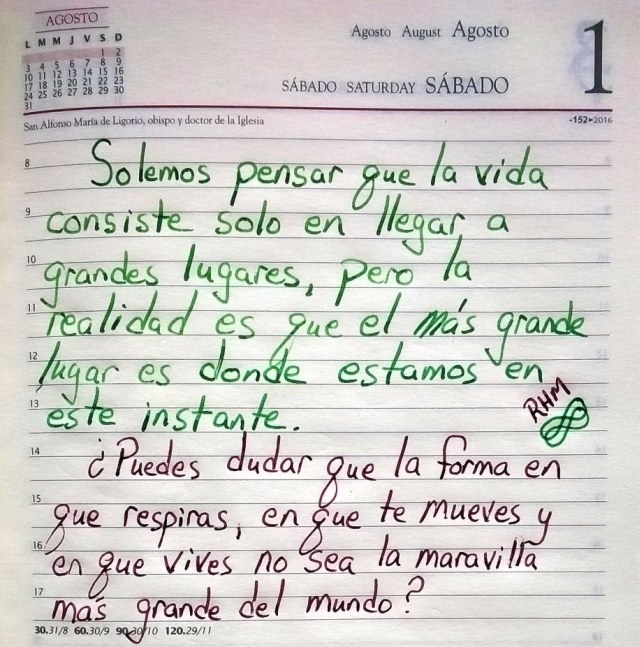 AGOSTO
L M M J V S D
1 2
3 4 5 6 7 8 9
10 11 12 13 14 15 16
17 18 19 20 21 22 23
24 25 26 27 28 29 30
31
Agosto August Agosto
SÁBADO SATURDAY SÁBADO
1
San Alfonso María de Ligorio, obispo y doctor de la Iglesia
-152▸2016
8 Solemos pensar que la vida
9 consiste solo en llegar a
10 grandes lugares, pero la
11 realidad es que el más grande
12 lugar es donde estamos en
13 este instante.
RHM
14 ¿Puedes dudar que la forma en
15 que respiras, en que te mueves y
16 en que vives no sea la maravilla
17 más grande del mundo?
30.31/8 60.30/9 90.30/10 120.29/11